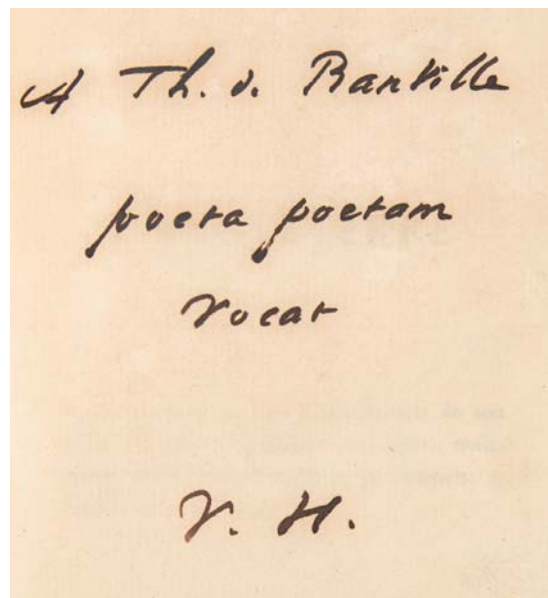 A Th. d. Banville
poeta poetam
vocat
V. H.